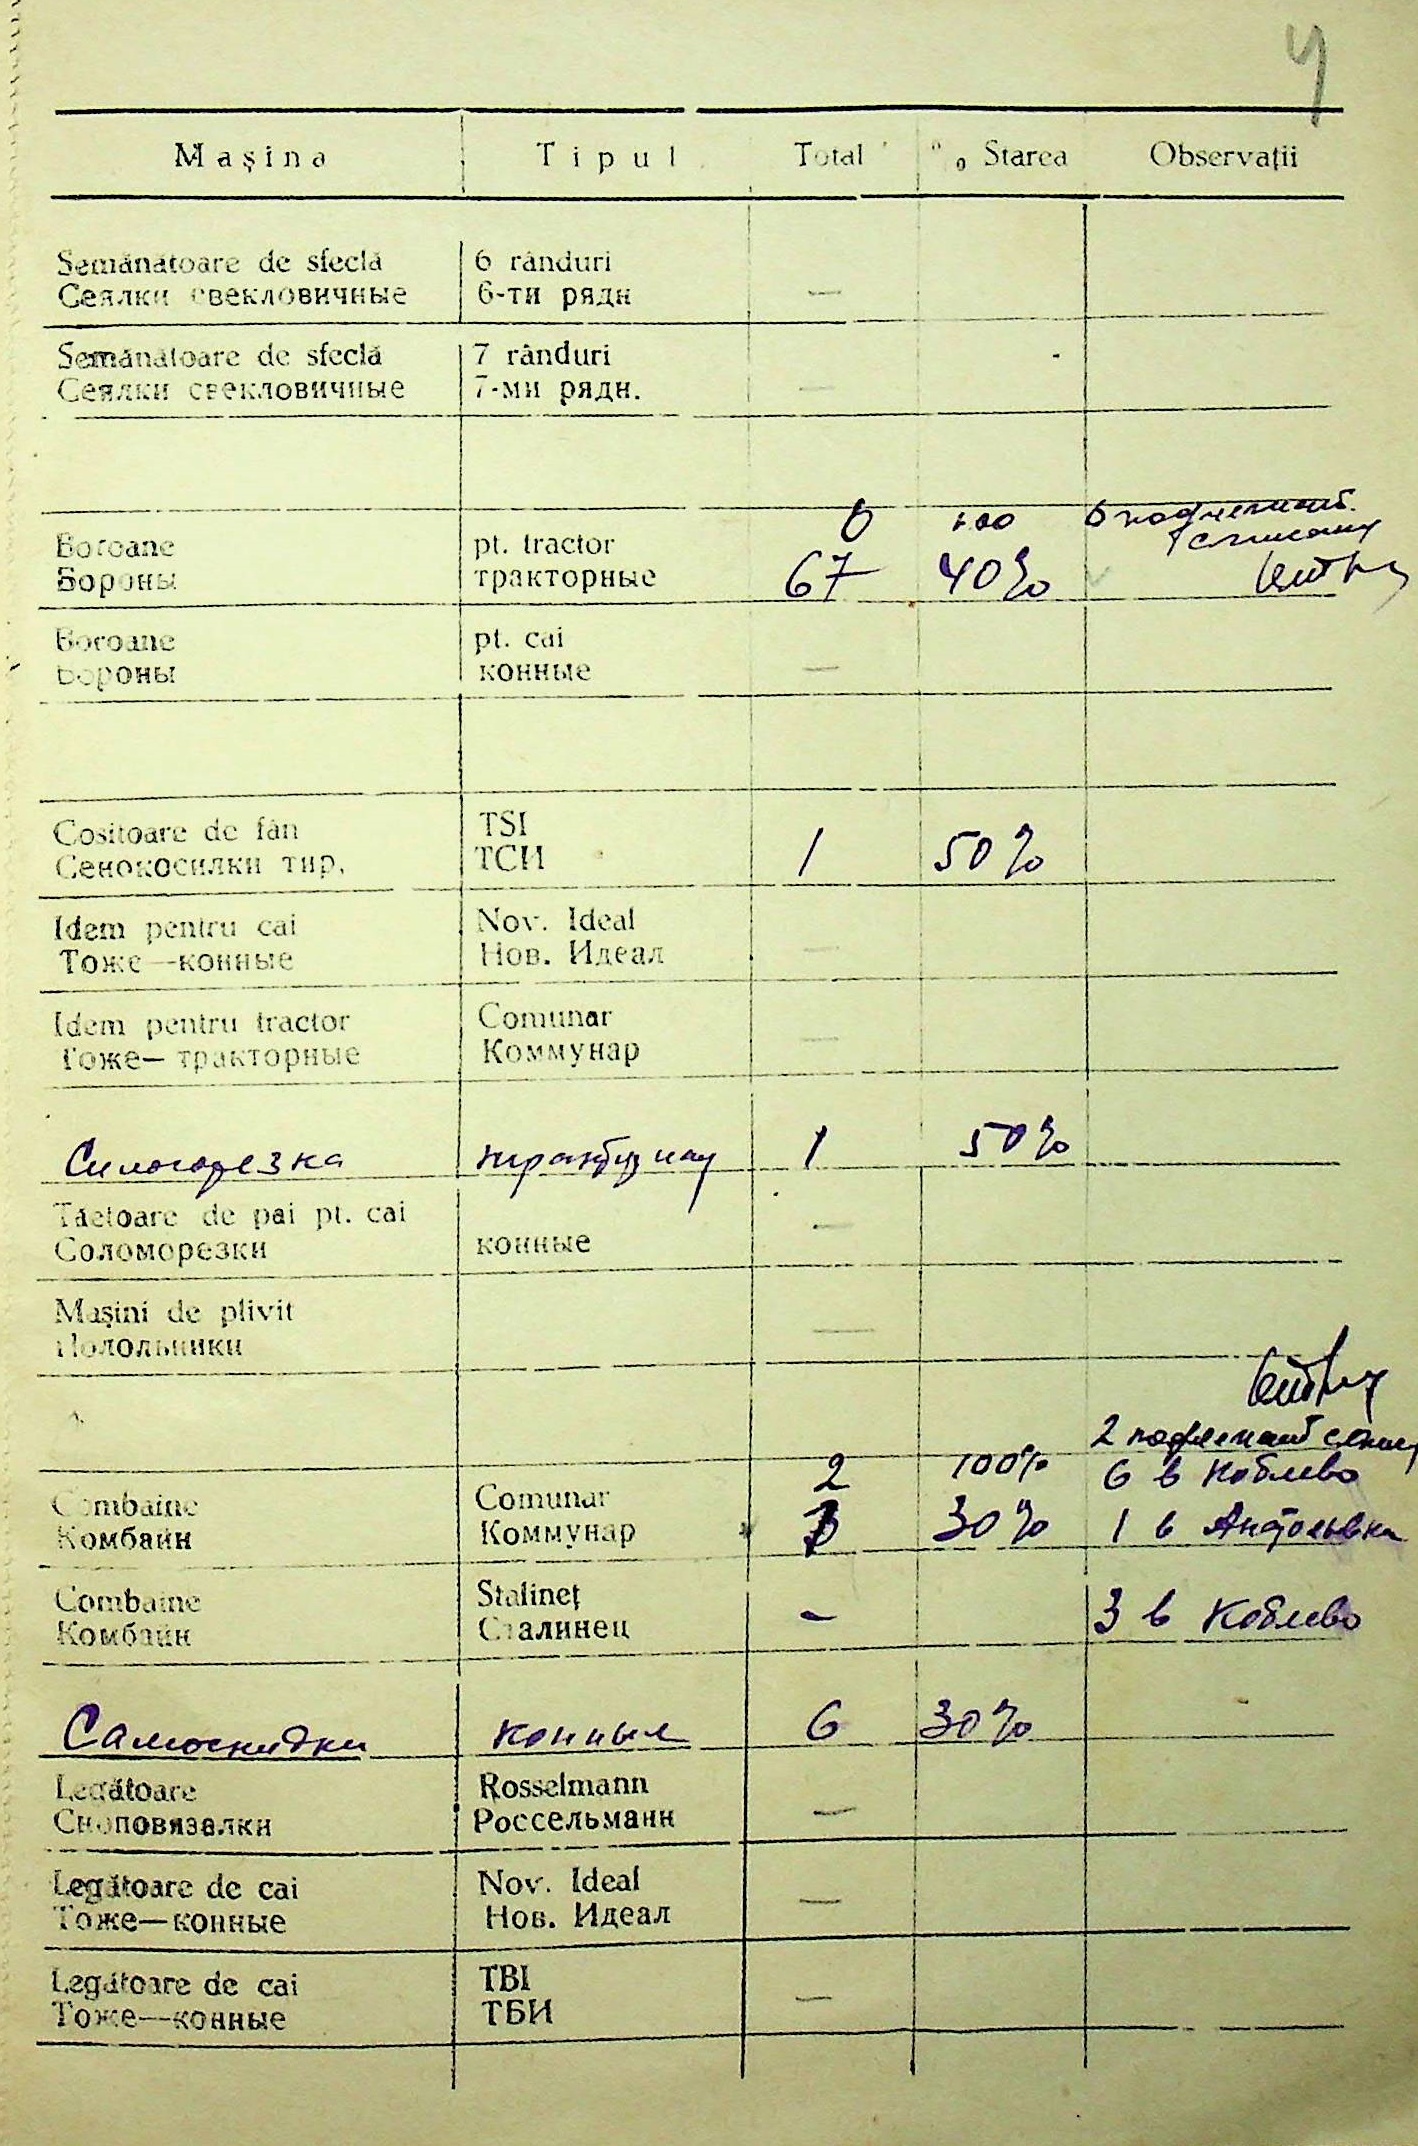 4
Maşina Tipul Total % Starea Observaţii
Semănătoare de sfeclă 6 rânduri
Сеялки свекловичные 6-ти рядн —
Semănătoare de sfeclă 7 rânduri
Сеялки свекловичные 7-ми рядн. —
6 100 6 подлежит
Boroane pt. tractor списан
Бороны тракторные 67 40%
Boroane pt. cai
Бороны конные —
Cositoare de fân TSI
Сенокосилки тир. ТСИ 1 50%
Idem pentru cai Nov. Ideal
Тоже—конные Нов. Идеал —
Idem pentru tractor Comunar
Тоже—тракторные Коммунар —
Силосорезка 1 50%
Tăetoare de pai pt. cai
Соломорезки конные —
Maşini de plivit
Полольники —
2 подлежит
2 100% 6 в Коблево
Combaine Comunar
Комбайн Коммунар 30% 1 в
Combaine Stalineţ
Комбайн Сталинец — 3 в Коблево
Самоскидки конные 6 30%
Legătoare Rosselmann
Сноповязалки Россельманн —
Legătoare de cai Nov. Ideal
Тоже—конные Нов. Идеал —
Legătoare de cai TBI
Тоже—конные ТБИ —